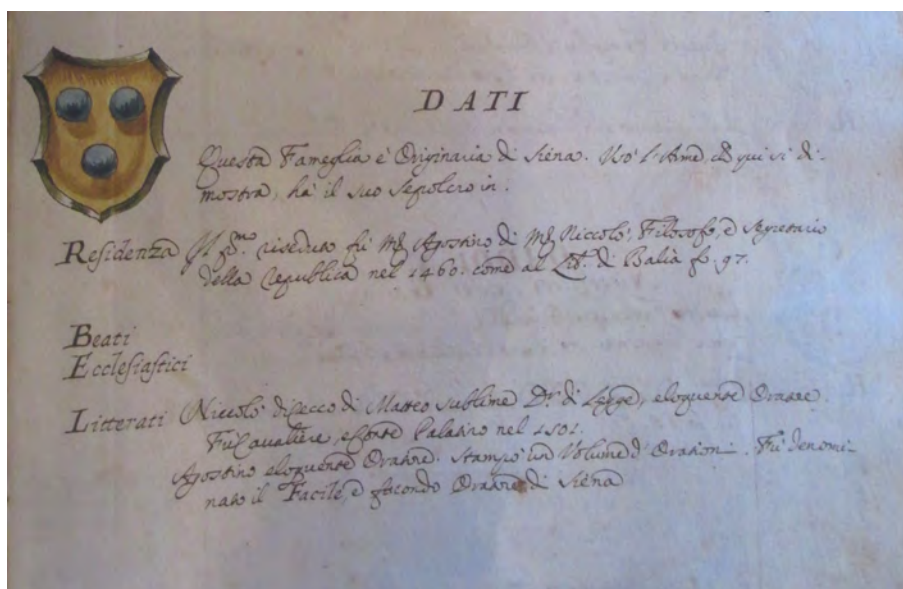 DATI
Questa Fameglia è Originaria di Siena. Usò l'Arme, ch qui si di-
mostra, hà il suo Sepolcro in.
Residenza Il p.mo riseduto fù Mr. Agostino di Mr. Niccolò, Filosofo, e Segretario
della Republica nel 1460. come al Lib. di Balia fo. 97.
Beati
Ecclesiastici
Litterati Niccolò di Cecco di Matteo sublime Dr. di Legge, eloquente Oratore.
Fù Cavaliere, e Conte Palatino nel 1501.
Agostino eloquente Oratore. Stampò un Volume d'Orationi. Fù denomi-
nato il Facile, e facondo Oratore di Siena